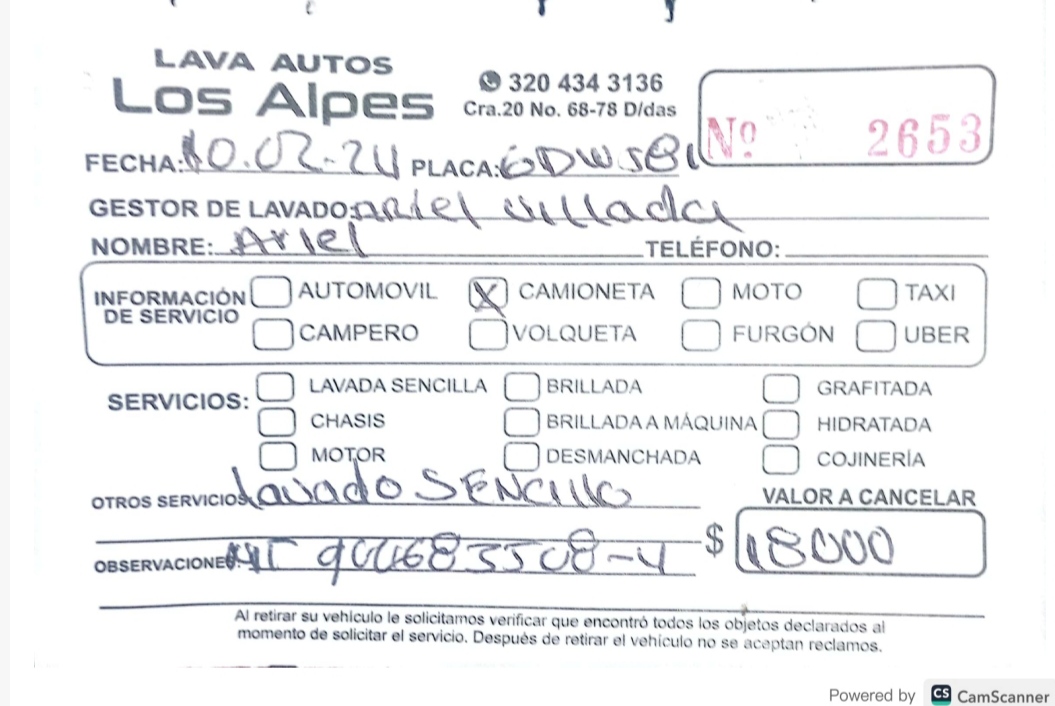 LAVA AUTOS
Los Alpes
320 434 3136
Cra.20 No. 68-78 D/das
Nº 2653
FECHA: 10.02-24 PLACA:
GESTOR DE LAVADO: Ariel Villada
NOMBRE: Ariel TELÉFONO:
INFORMACIÓN DE SERVICIO
AUTOMOVIL X CAMIONETA MOTO TAXI
CAMPERO VOLQUETA FURGÓN UBER
SERVICIOS:
LAVADA SENCILLA BRILLADA GRAFITADA
CHASIS BRILLADA A MÁQUINA HIDRATADA
MOTOR DESMANCHADA COJINERÍA
OTROS SERVICIOS lavado SENCILLO VALOR A CANCELAR
OBSERVACIONES: NIT $ 18000
Al retirar su vehiculo le solicitamos verificar que encontró todos los objetos declarados al
momento de solicitar el servicio. Después de retirar el vehículo no se aceptan reclamos.
Powered by CS CamScanner